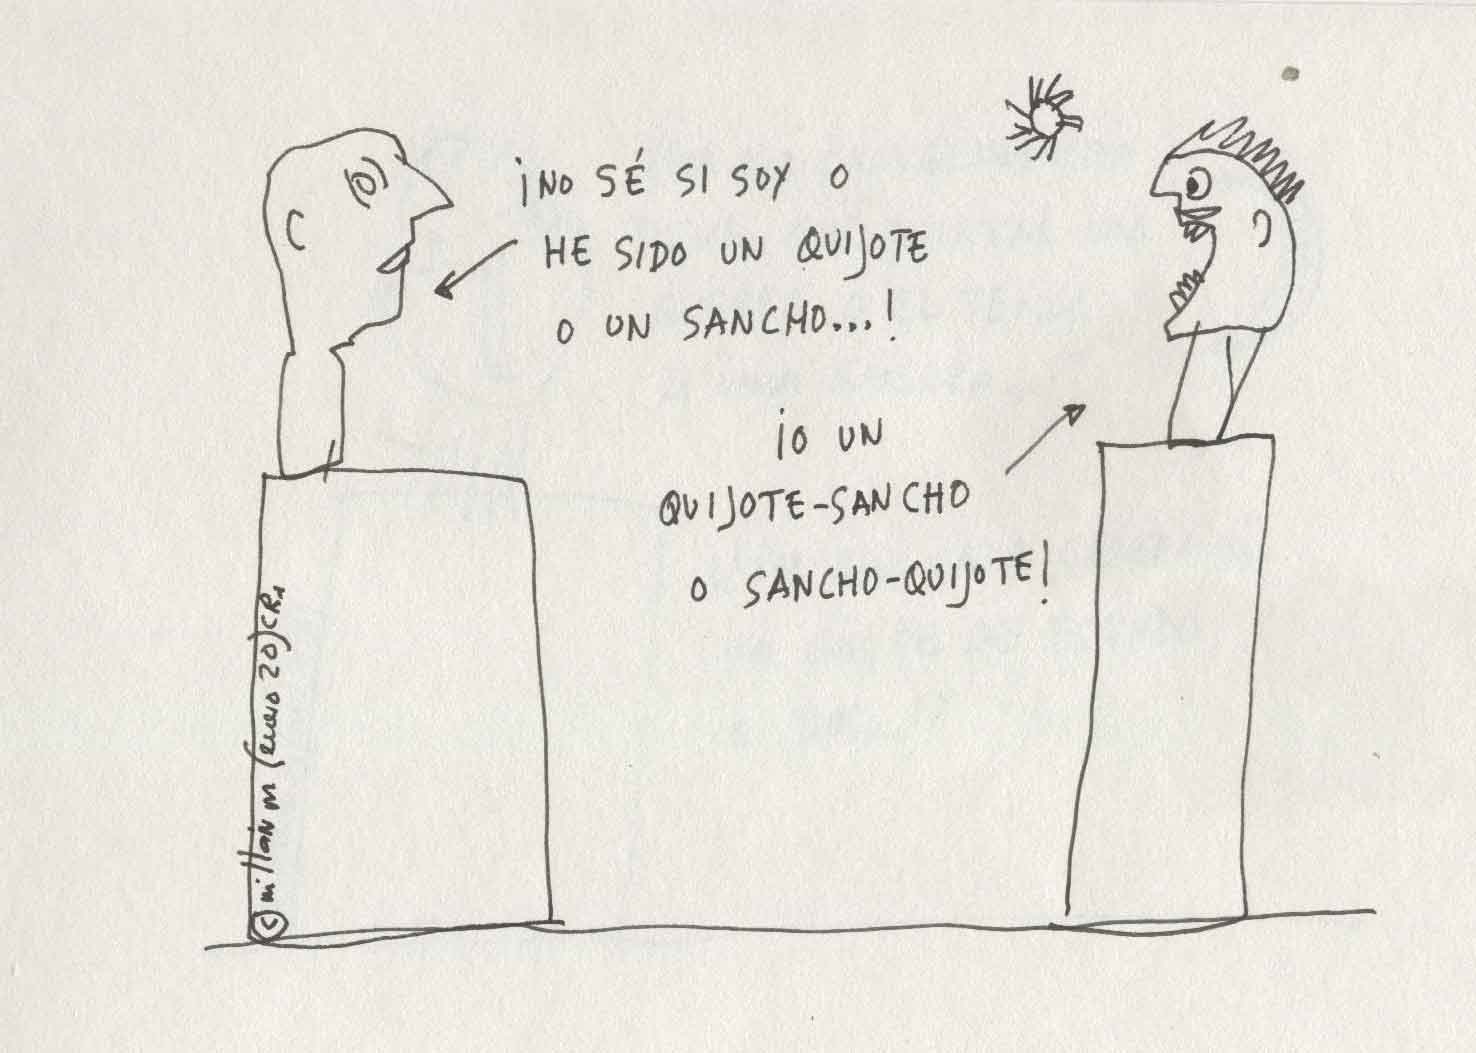 ¡NO SÉ SI SOY O
HE SIDO UN QUIJOTE
O UN SANCHO...!
¡O UN
QUIJOTE-SANCHO
O SANCHO-QUIJOTE!
© millán m (enero 20)